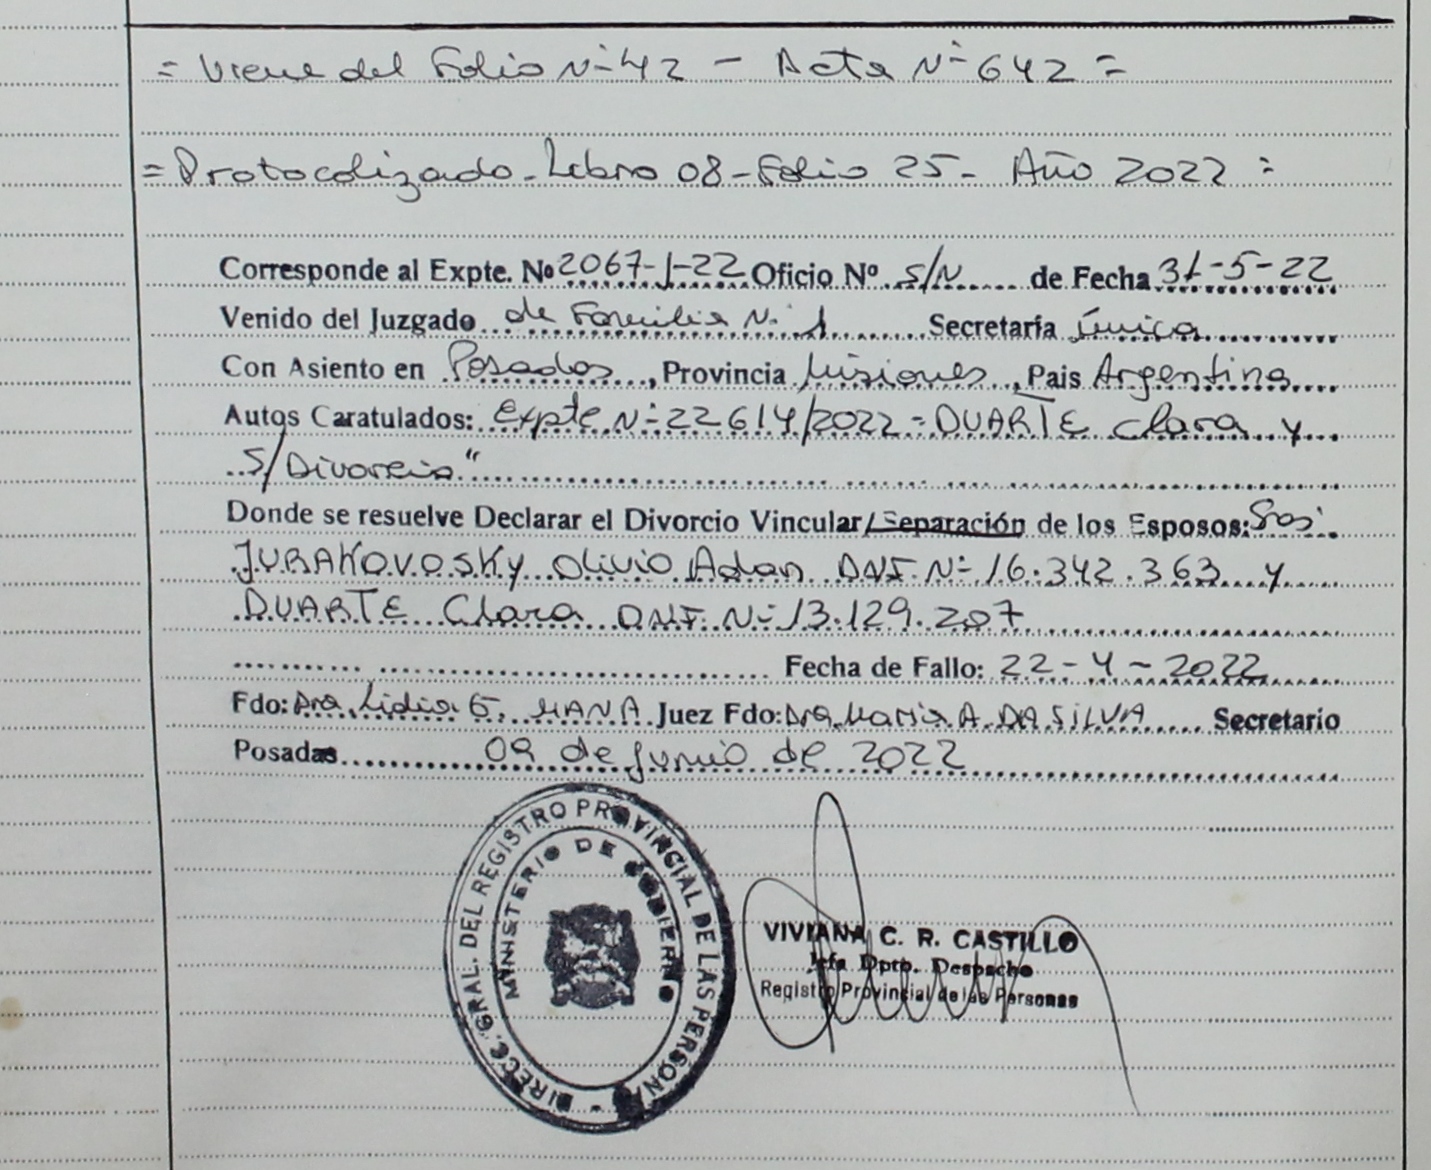 = Viene del Folio Nº 42 - Acta Nº 642 =
= Protocolizado - Libro 08 - Folio 25 - Año 2022 =
Corresponde al Expte. Nº 2067-J-22 Oficio Nº S/N de Fecha 31-5-22
Venido del Juzgado de Familia Nº 1 Secretaría Única
Con Asiento en Posadas, Provincia Misiones, Pais Argentina
Autos Caratulados: Expte Nº 22614/2022 - DUARTE Clara y
S/Divorcio"
Donde se resuelve Declarar el Divorcio Vincular/Separación de los Esposos:
JURAKOVOSKY Olivio Adan DNI Nº 16.342.363 y
DUARTE Clara DNI Nº 13.129.207
Fecha de Fallo: 22-4-2022
Fdo: Dra. Lidia E. Juez Fdo: Dra. Maria A. DA SILVA Secretario
Posadas 09 de Junio de 2022
DIRECC. GRAL. DEL REGISTRO PROVINCIAL DE LAS PERSONAS
MINISTERIO DE GOBIERNO
VIVIANA C. R. CASTILLO
Jefa Dpto. Despacho
Registro Provincial de las Personas